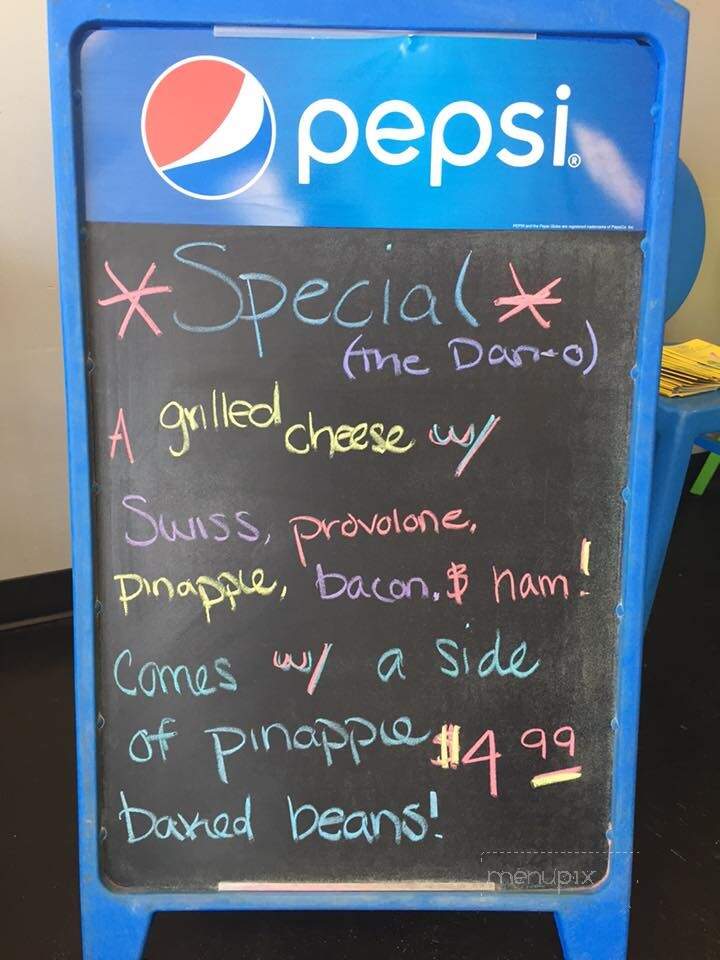 pepsi®
*Special*
(The Dari-o)
A grilled cheese w/
Swiss, provolone,
pinapple, bacon, & ham!
Comes w/ a side
of pinapple $4 99
baked beans!
menupix